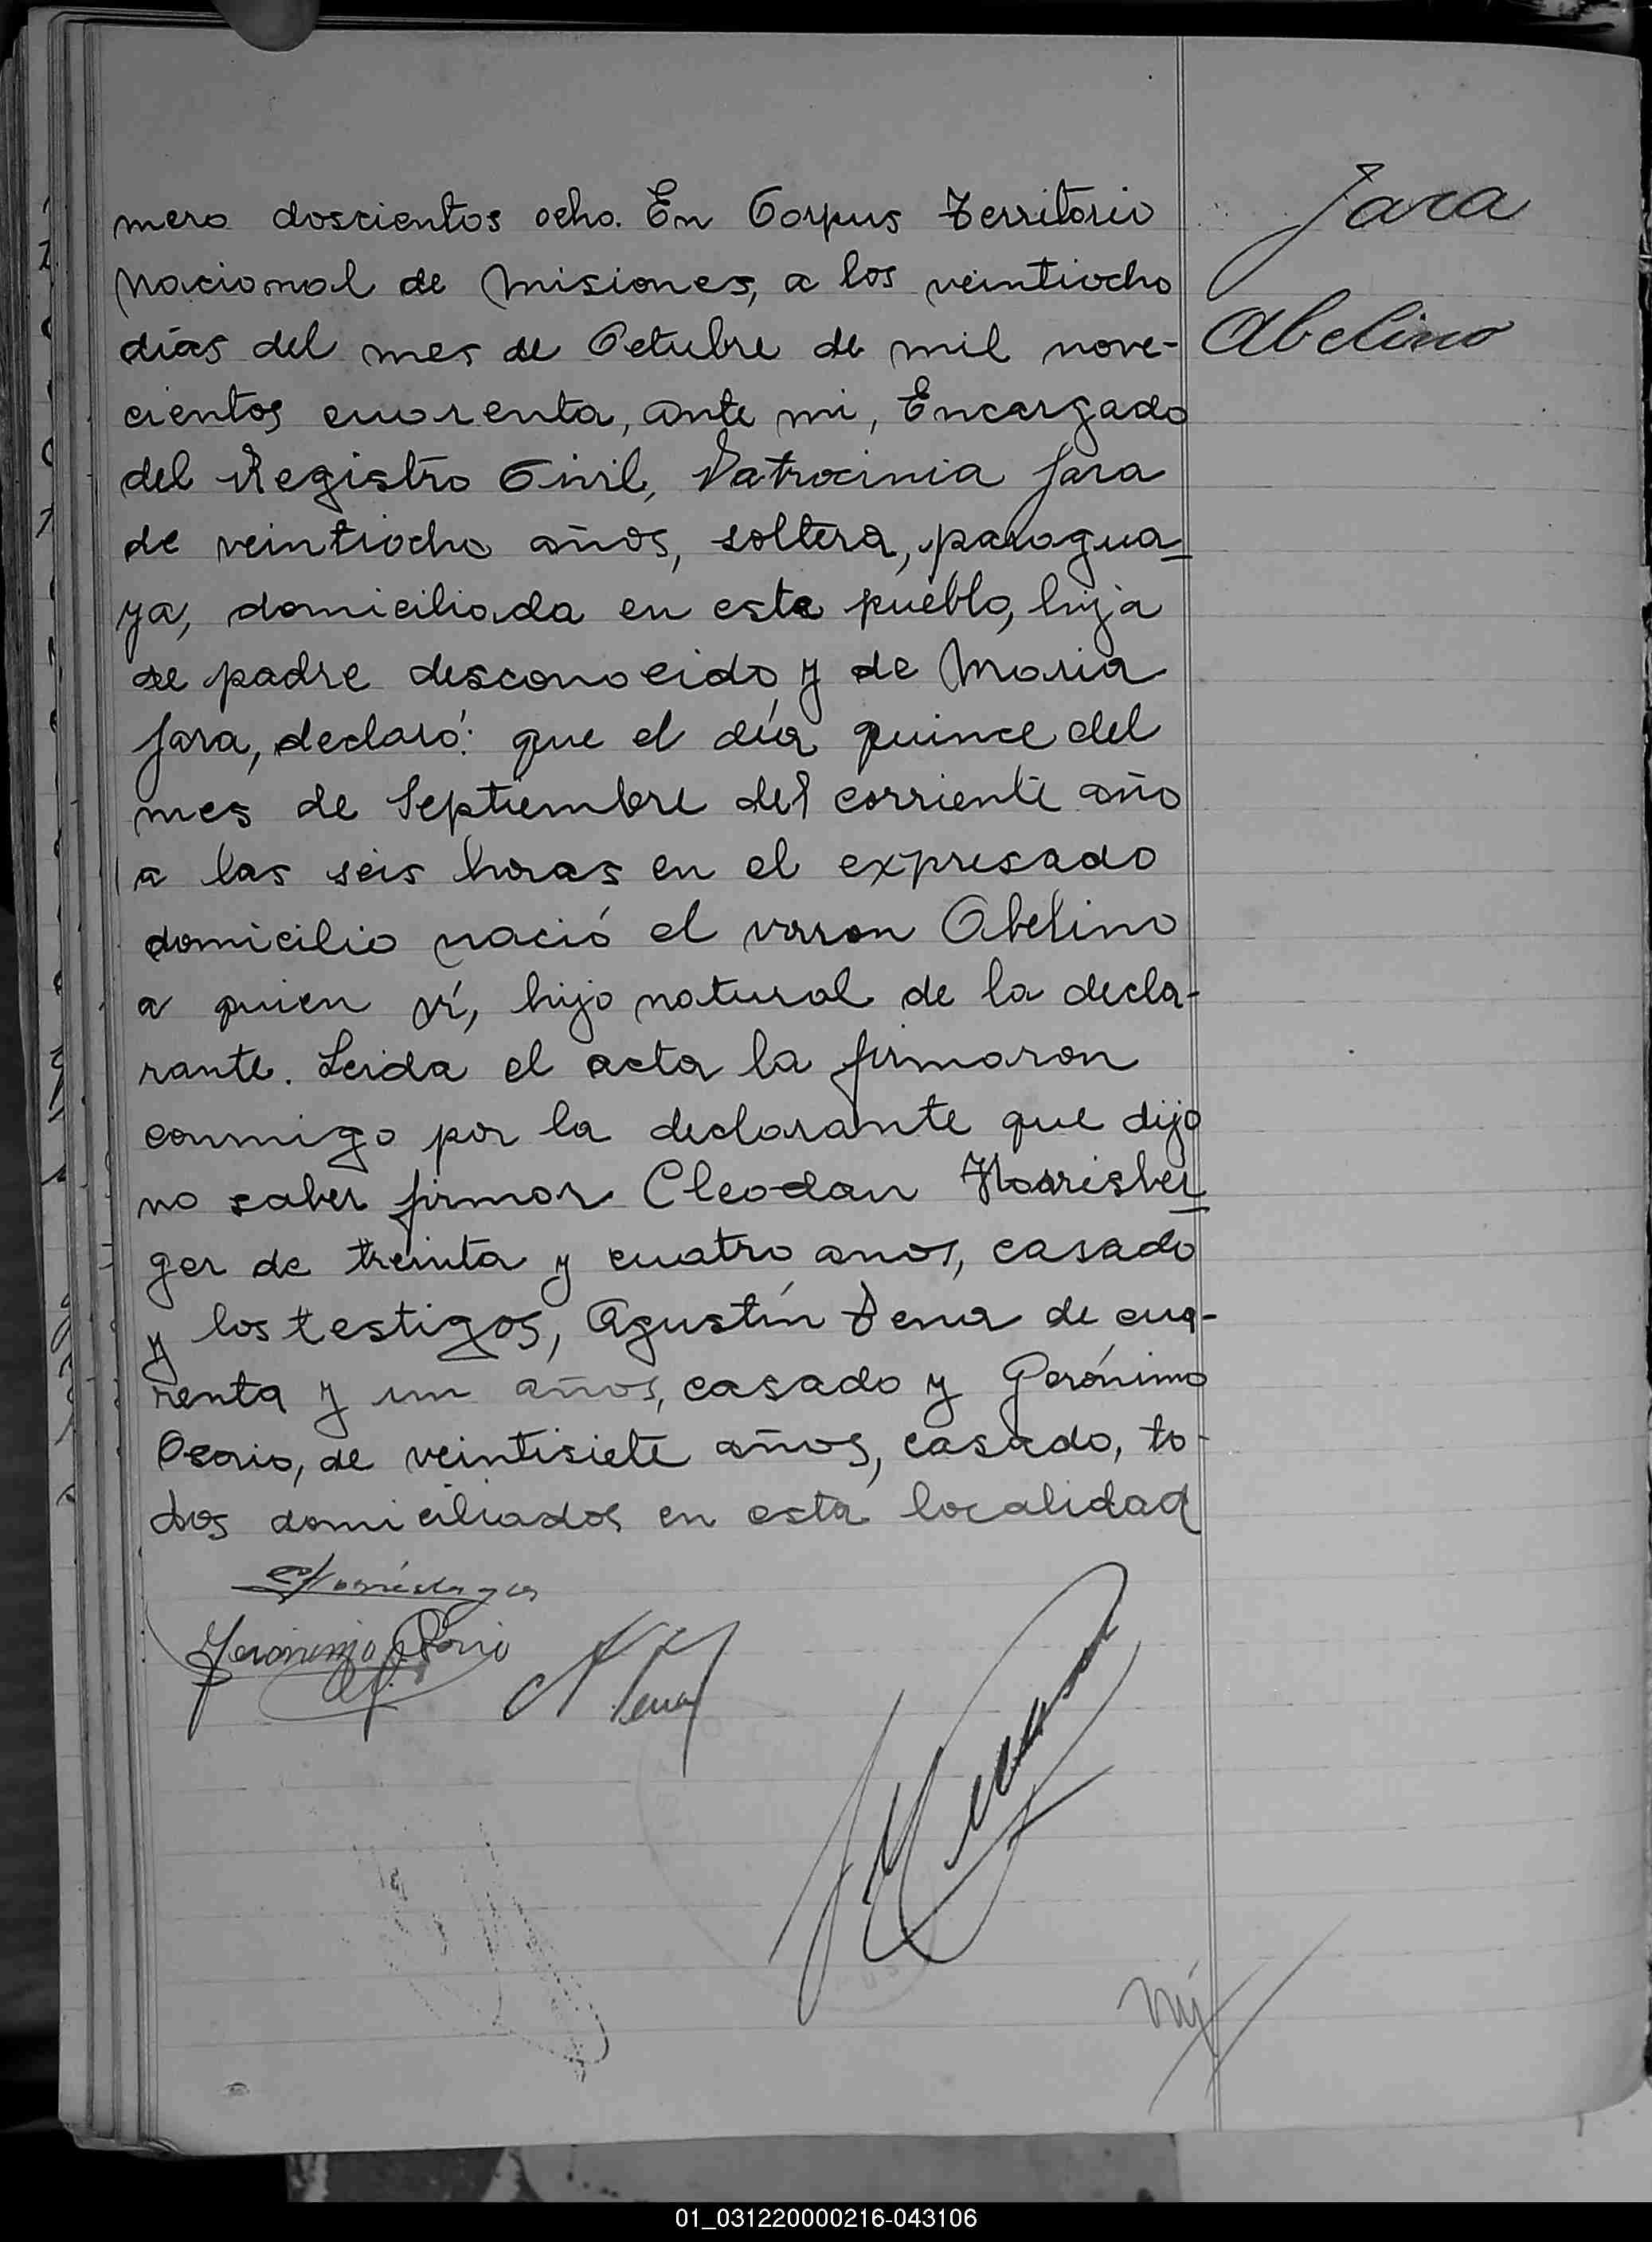 Jara
Abelino
mero doscientos ocho. En Corpus Territorio
Nacional de Misiones, a los veintiocho
días del mes de Octubre de mil nove-
cientos cuarenta, ante mi, Encargado
del Registro Civil, Patrocinia Jara
de veintiocho años, soltera, paragua-
ya, domiciliada en este pueblo, hija
de padre desconocido y de Maria
Jara, declaró: que el día quince del
mes de Septiembre del corriente año
a las seis horas en el expresado
domicilio nació el varon Abelino
a quien ví, hijo natural de la decla-
rante. Leida el acta la firmaron
conmigo por la declarante que dijo
no saber firmar Cleodan Harrisber
ger de treinta y cuatro anos, casado
y los testigos, Agustín Pena de cua-
renta y un años, casado y Gerónimo
Osorio, de veintisiete años, casado, to-
dos domiciliados en esta localidad
Jeronimo Osorio
A Pena
01_031220000216-043106